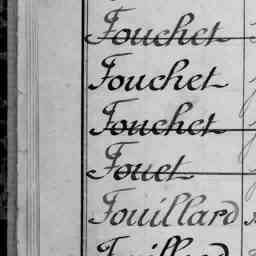 Fouchet
Fouchet
Fouchet
Fouet
Fouillard
Fouillard